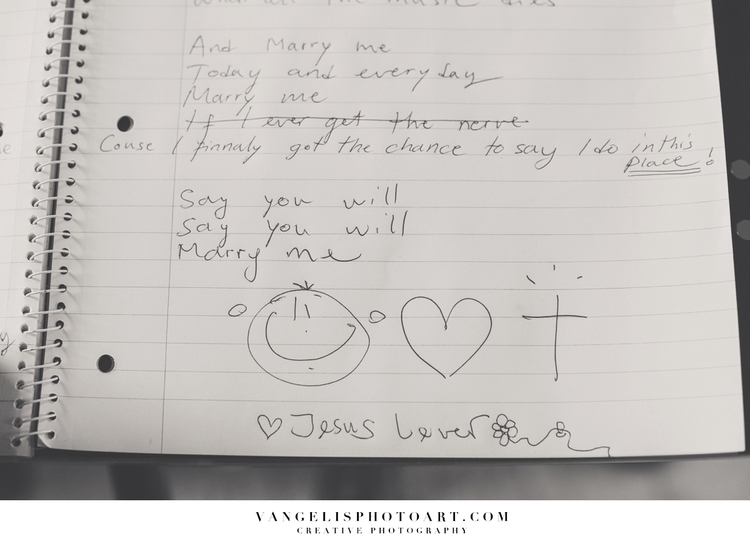 What all the music dies
And Marry me
Today and everyday
Marry me
If I ever get the nerve
Couse I finnaly got the chance to say I do in this place!
Say you will
Say you will
Marry me
Jesus Lover
VANGELISPHOTOART.COM
CREATIVE PHOTOGRAPHY